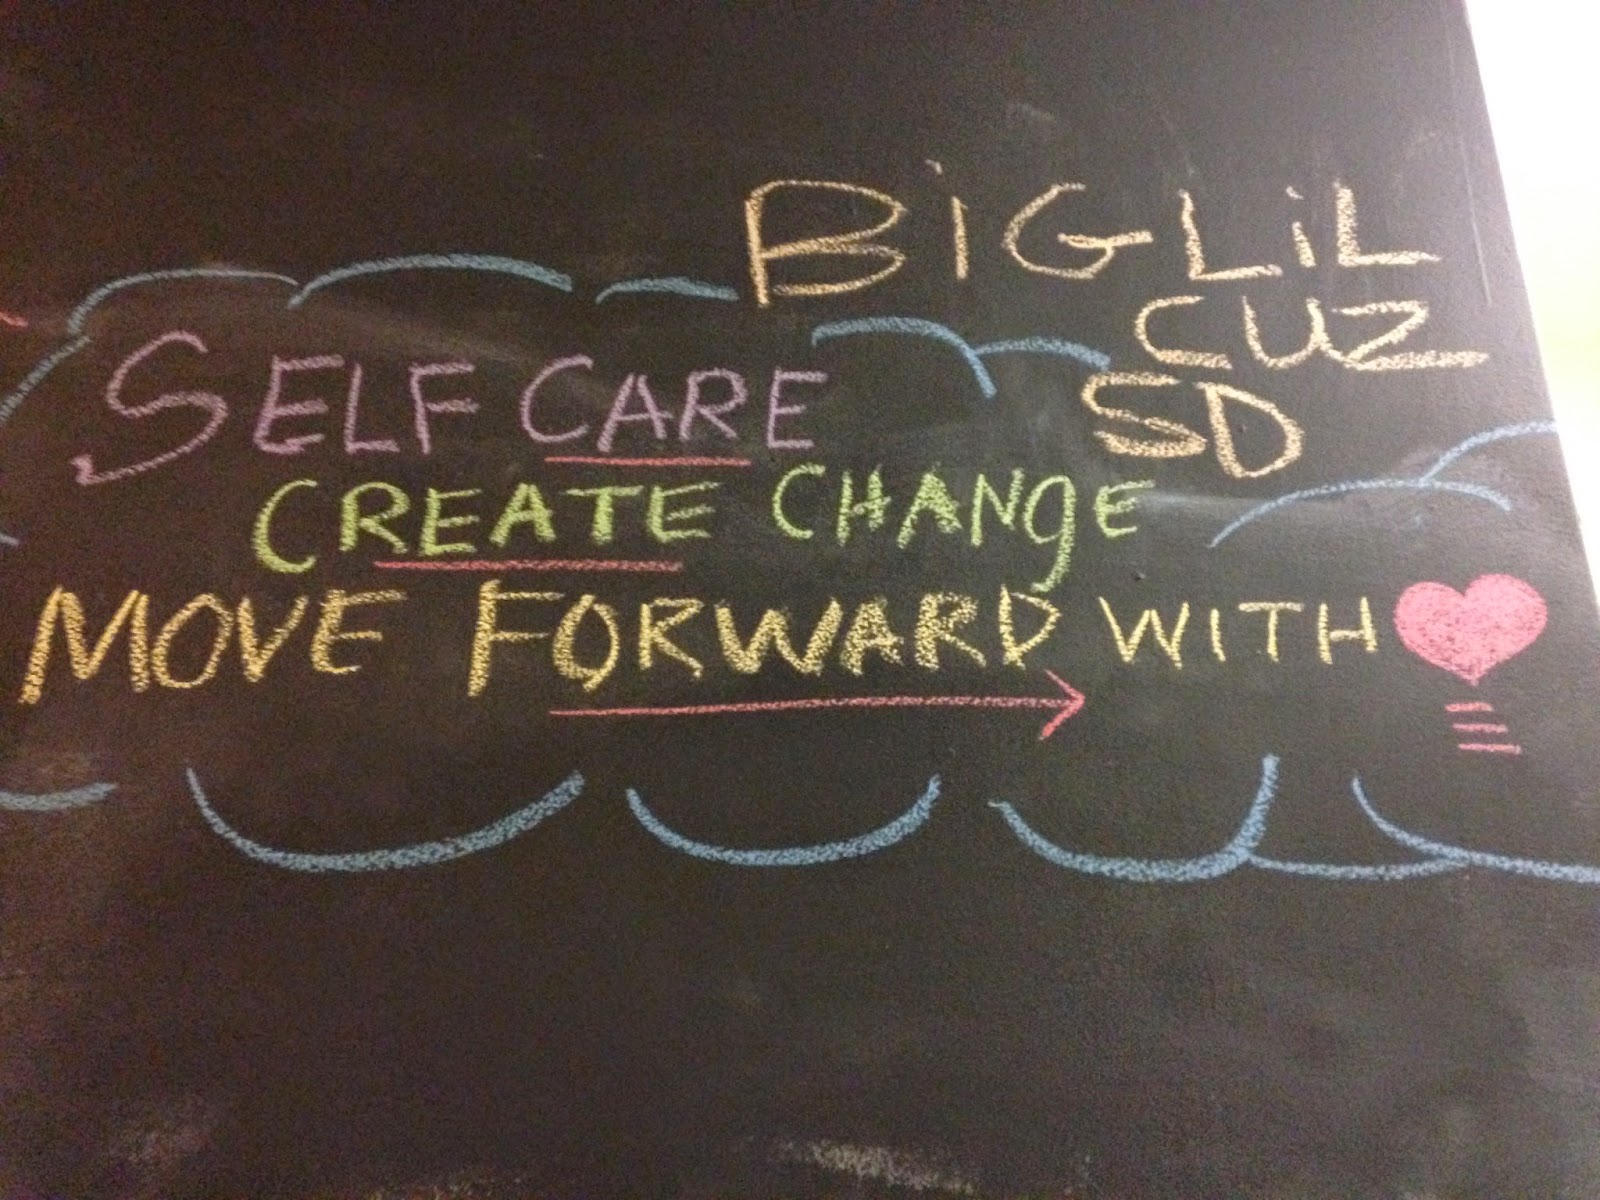 BiG LiL
CUZ
SD
SELF CARE
CREATE CHANgE
MOVE FORWARD WITH